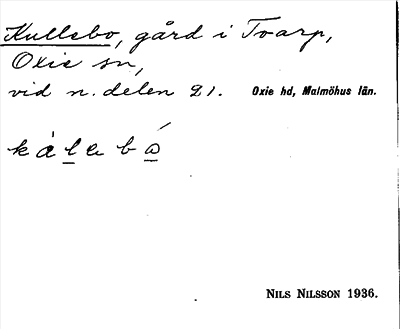 Kullebo, gård i Toarp,
Oxie sn,
vid n. delen 21. Oxie hd, Malmöhus län.
kàlebó
NILS NILSSON 1936.